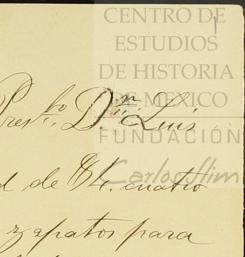 CENTRO DE
ESTUDIOS
DE HISTORIA
DE MEXICO
Presb.to D.n Luis
FUNDACIÓN
Carlos Slim
d de 84. cuatro
zapatos para